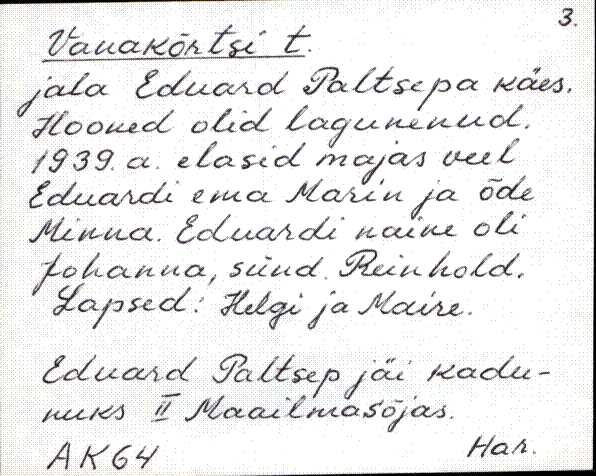 3.
Vanakõrtsi t.
jala Eduard Paltsepa käes.
Hooned olid lagunenud.
1939. a. elasid majas veel
Eduardi ema Mariin ja õde
Minna. Eduardi naine oli
Johanna, sünd. Reinhold.
Lapsed: Helgi ja Maire.
Eduard Paltsep jäi kadu-
nuks II Maailmasõjas.
AK64 Har.